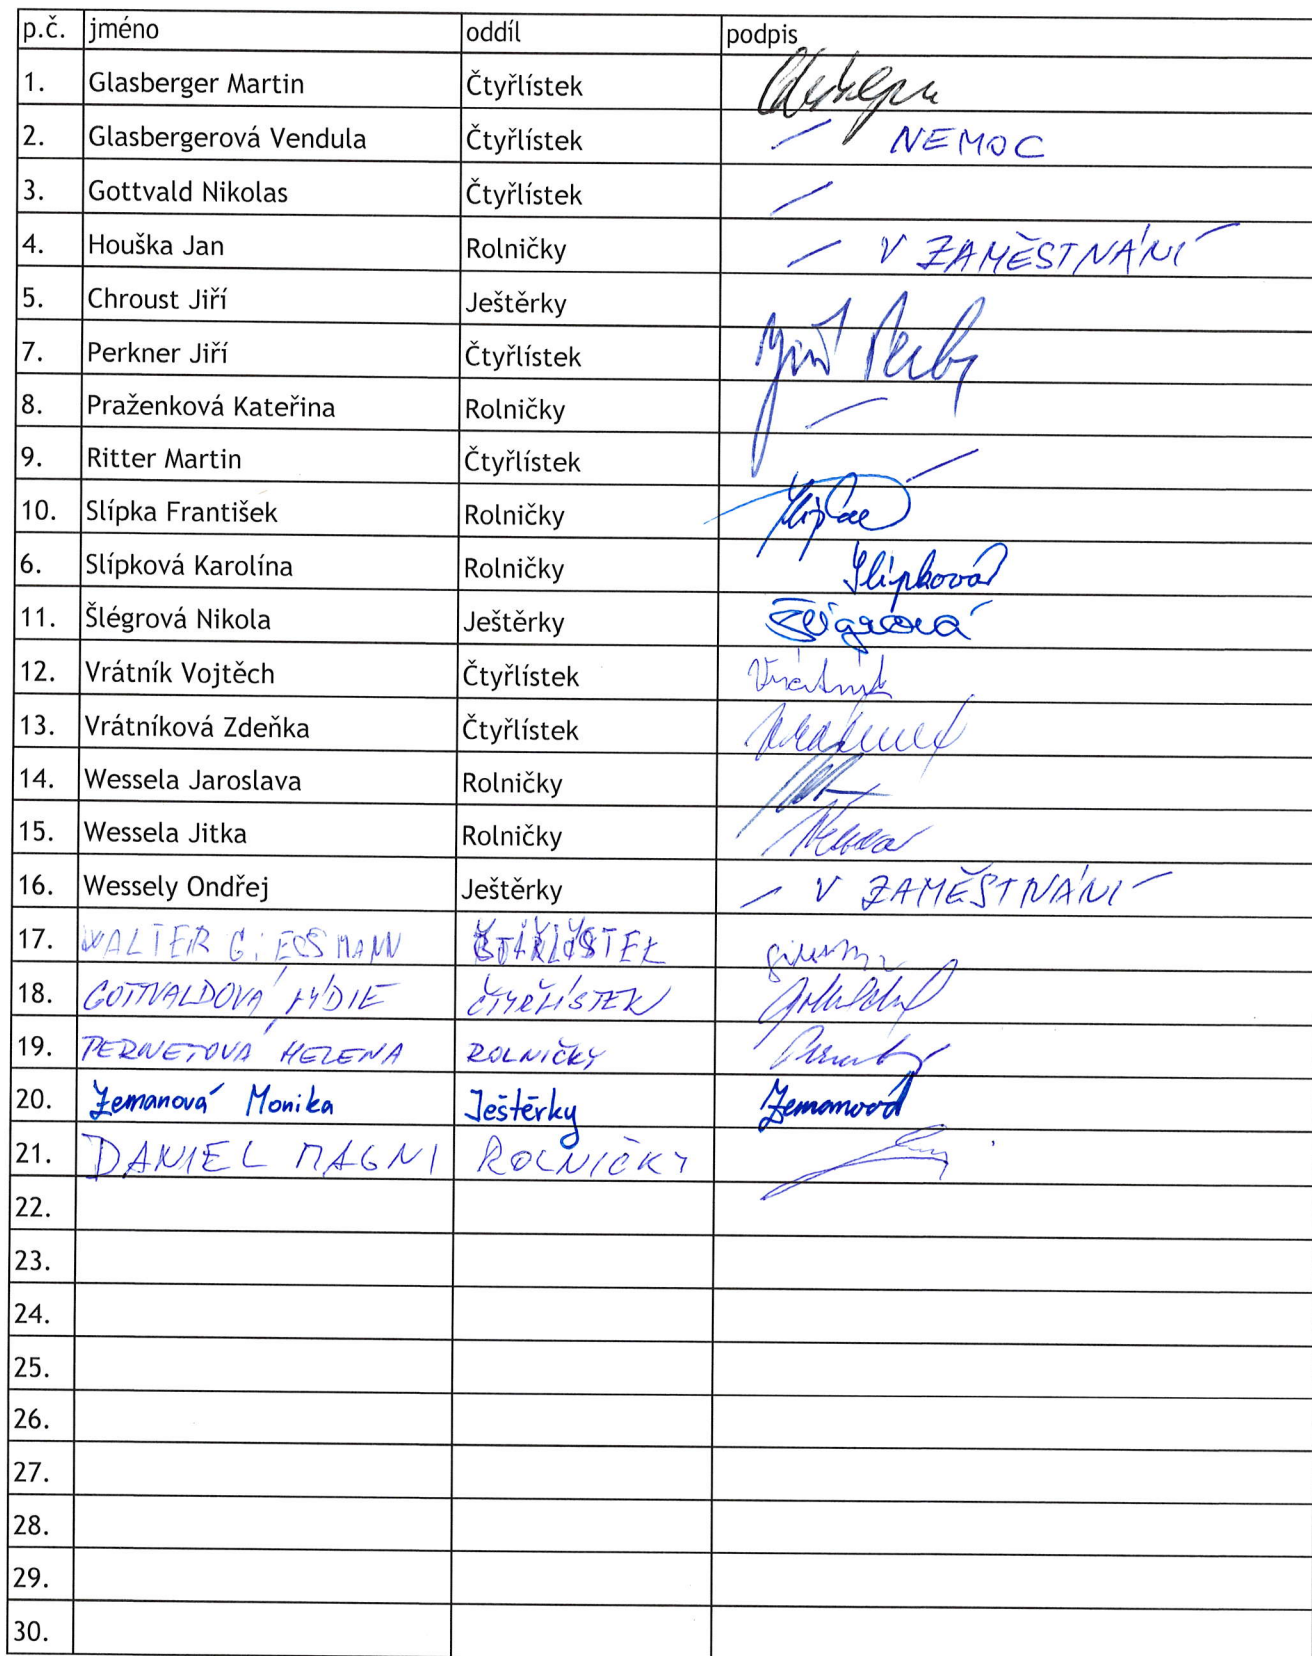 p.č. jméno oddíl podpis
1. Glasberger Martin Čtyřlístek
2. Glasbergerová Vendula Čtyřlístek – NEMOC
3. Gottvald Nikolas Čtyřlístek –
4. Houška Jan Rolničky – V ZAMĚSTNÁNÍ
5. Chroust Jiří Ještěrky
7. Perkner Jiří Čtyřlístek
8. Praženková Kateřina Rolničky –
9. Ritter Martin Čtyřlístek –
10. Slípka František Rolničky
6. Slípková Karolína Rolničky Slípková
11. Šlégrová Nikola Ještěrky
12. Vrátník Vojtěch Čtyřlístek Vrátník
13. Vrátníková Zdeňka Čtyřlístek
14. Wessela Jaroslava Rolničky
15. Wessela Jitka Rolničky
16. Wessely Ondřej Ještěrky – V ZAMĚSTNÁNÍ
17. WALTER
18. GOTTVALDOVÁ LÝDIE ČTYŘLÍSTEK
19. PERNETOVÁ HELENA ROLNIČKY
20. Zemanová Monika Ještěrky Zemanová
21. DANIEL MAGNI ROLNIČKY
22.
23.
24.
25.
26.
27.
28.
29.
30.